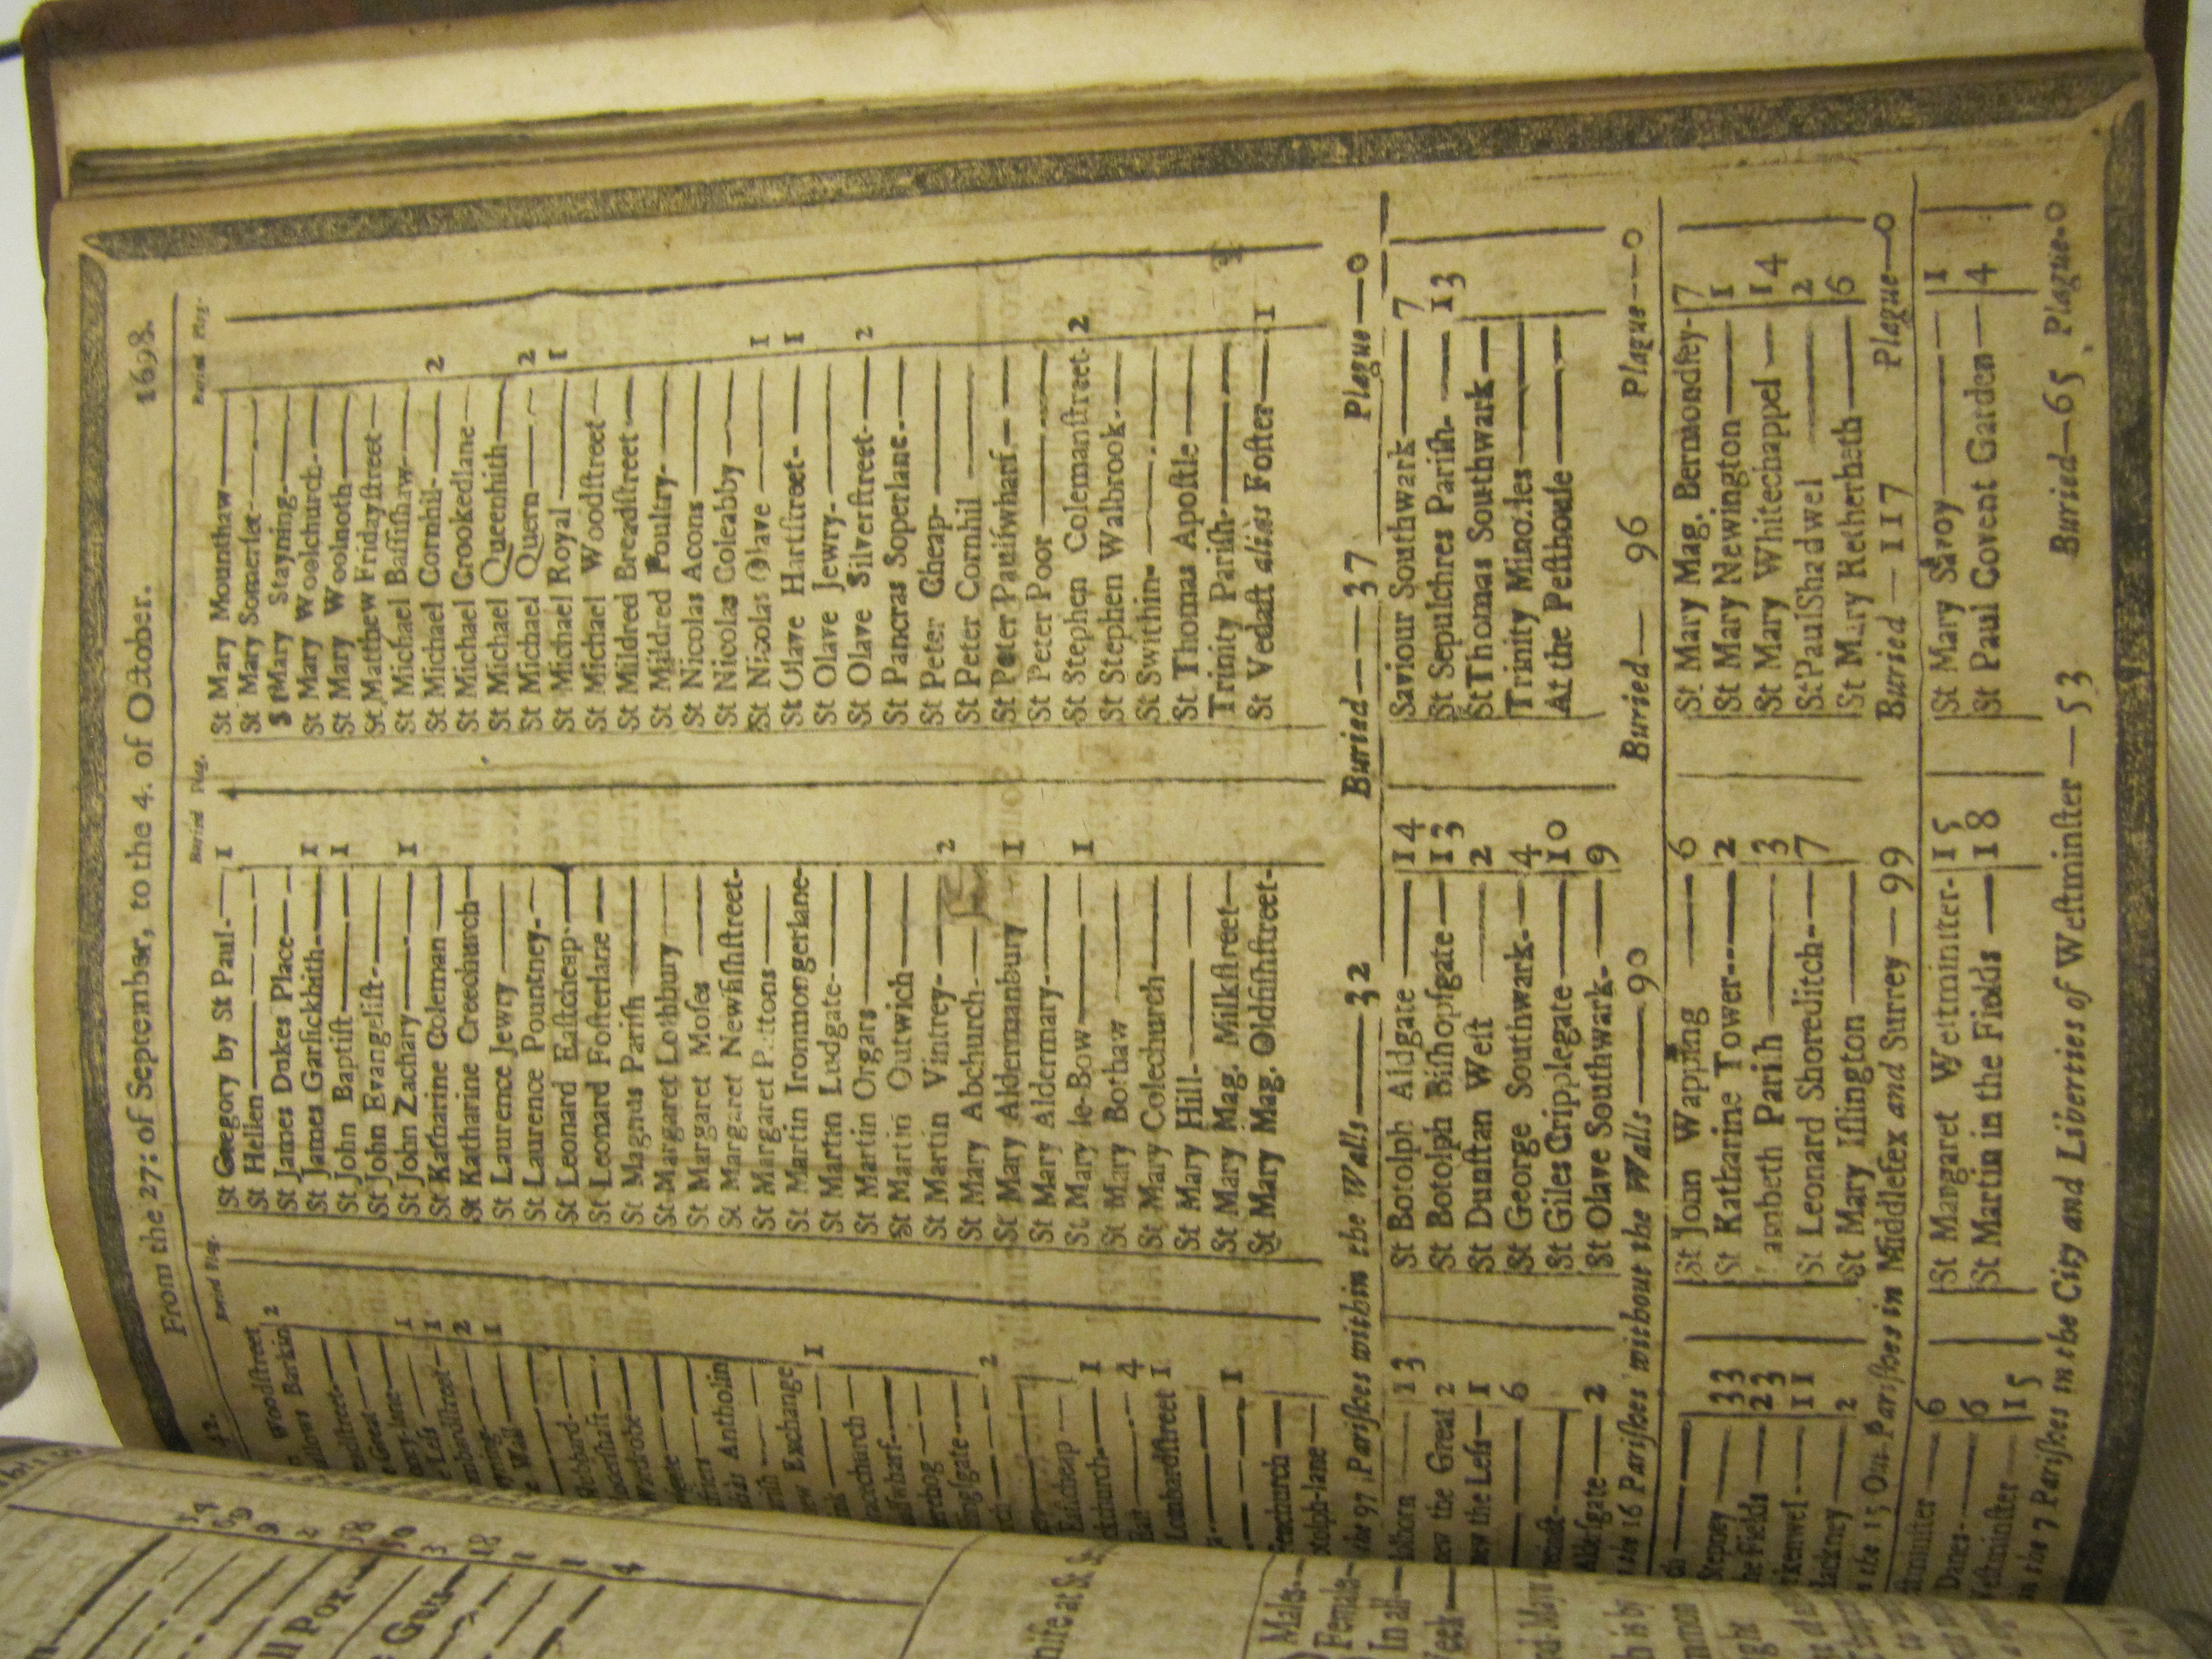 From the 27: of September, to the 4. of October. 1698.
Buried Plag.
Woodstreet
Barkin 2
Great
Less
Wardrobe
Antholin
Exchange 1
Lombardstreet 1
Fenchurch
Buried Plag.
St Gregory by St Paul 1
St Hellen
St James Dukes Place
St James Garlickhith 1
St John Baptist 1
St John Evangelist
St John Zachary 1
St Katharine Coleman
St Katharine Creechurch
St Laurence Jewry
St Laurence Pountney
St Leonard Eastcheap
St Leonard Fosterlane
St Magnus Parish
St Margaret Lothbury
St Margaret Moses
St Margaret Newfishstreet
St Margaret Pattons
St Martin Ironmongerlane
St Martin Ludgate
St Martin Orgars
St Martin Outwich
St Martin Vintrey 2
St Mary Abchurch
St Mary Aldermanbury 1
St Mary Aldermary
St Mary le-Bow 1
St Mary Bothaw
St Mary Colechurch
St Mary Hill
St Mary Mag. Milkstreet
St Mary Mag. Oldfishstreet
Buried Plag.
St Mary Mounthaw
St Mary Somerset
St Mary Stayning
St Mary Woolchurch
St Mary Woolnoth
St Matthew Fridaystreet
St Michael Bassishaw
St Michael Cornhil 2
St Michael Crookedlane
St Michael Queenhith
St Michael Quern 2
St Michael Royal 1
St Michael Woodstreet
St Mildred Breadstreet
St Mildred Poultry
St Nicolas Acons
St Nicolas Coleabby
St Nicolas Olave 1
St Olave Hartstreet 1
St Olave Jewry
St Olave Silverstreet 2
St Pancras Soperlane
St Peter Cheap
St Peter Cornhil
St Peter Paulswharf
St Peter Poor
St Stephen Colemanstreet 2
St Stephen Walbrook
St Swithin
St Thomas Apostle
Trinity Parish
St Vedast alias Foster 1
the 97 Parishes within the Walls 32 Buried 37 Plague 0
13
the Great 2
the Less 1
6
Aldersgate 2
St Botolph Aldgate 14
St Botolph Bishopsgate 13
St Dunstan West 2
St George Southwark 4
St Giles Cripplegate 10
St Olave Southwark 9
Saviour Southwark 7
St Sepulchres Parish 13
St Thomas Southwark
Trinity Minories
At the Pesthouse
the 16 Parishes without the Walls 90 Buried 96 Plague 0
Stepney 33
Fields 23
11
2
St John Wapping 6
St Katharine Tower 2
Lambeth Parish 3
St Leonard Shoreditch 7
St Mary Islington
St Mary Mag. Bermondsey 7
St Mary Newington 1
St Mary Whitechappel 14
St Paul Shadwel 2
St Mary Retherheth 6
the 15 Out-Parishes in Middlesex and Surrey 99 Buried 117 Plague 0
6
6
Westminster 15
St Margaret Westminster 15
St Martin in the Fields 18
St Mary Savoy 1
St Paul Covent Garden 4
the 7 Parishes in the City and Liberties of Westminster 53 Buried 65 Plague 0
Males
Female
In all